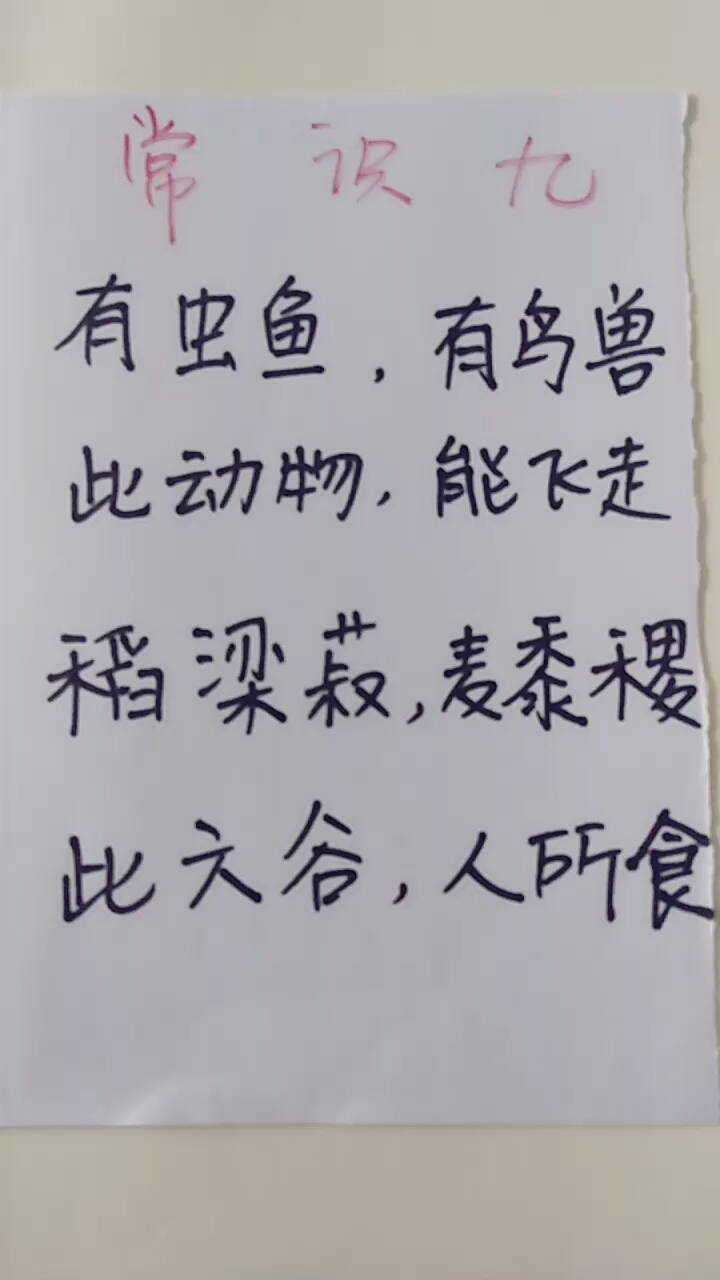 常识九
有虫鱼，有鸟兽
此动物，能飞走
稻梁菽，麦黍稷
此六谷，人所食